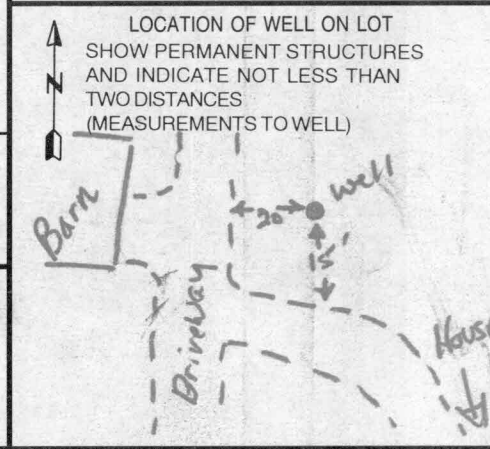 LOCATION OF WELL ON LOT
SHOW PERMANENT STRUCTURES
AND INDICATE NOT LESS THAN
TWO DISTANCES
(MEASUREMENTS TO WELL)
N
Barn
well
20
15'
Driveway
House